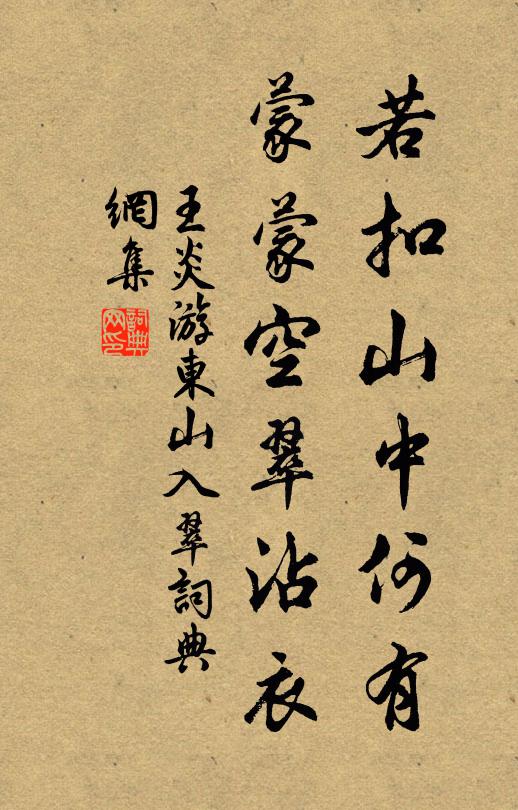 若扣山中何有
蒙蒙空翠沾衣
王炎游東山入翠詞典
網集
詞典网印